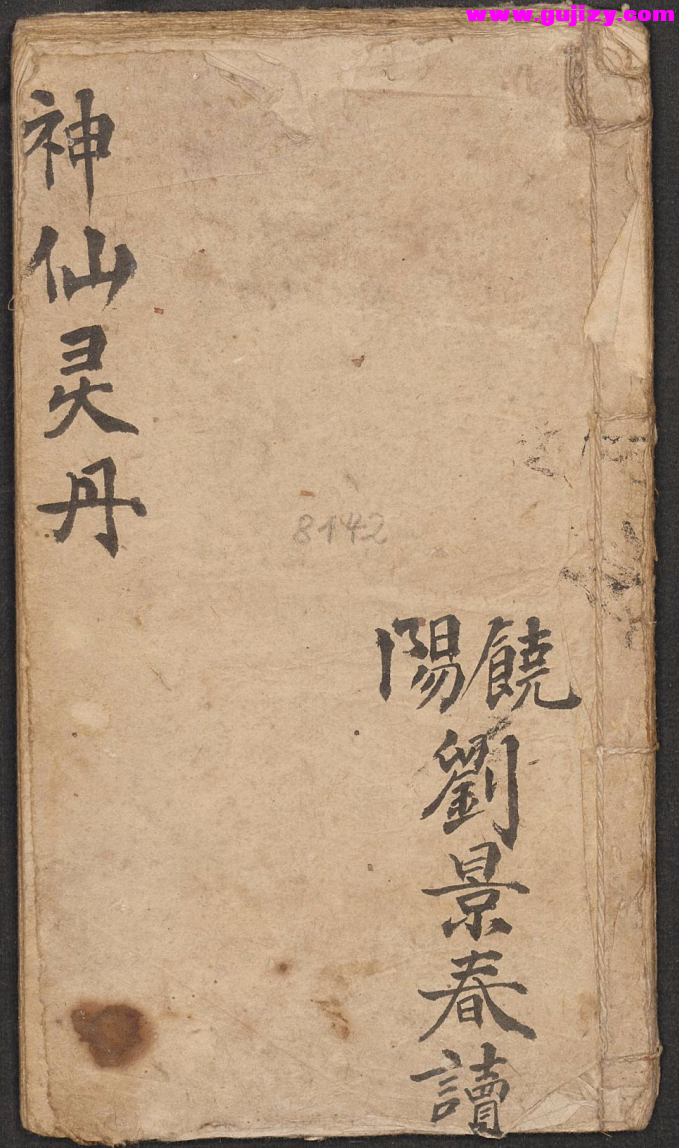 www.gujizy.com
饒陽
劉景春讀
神仙灵丹
8142